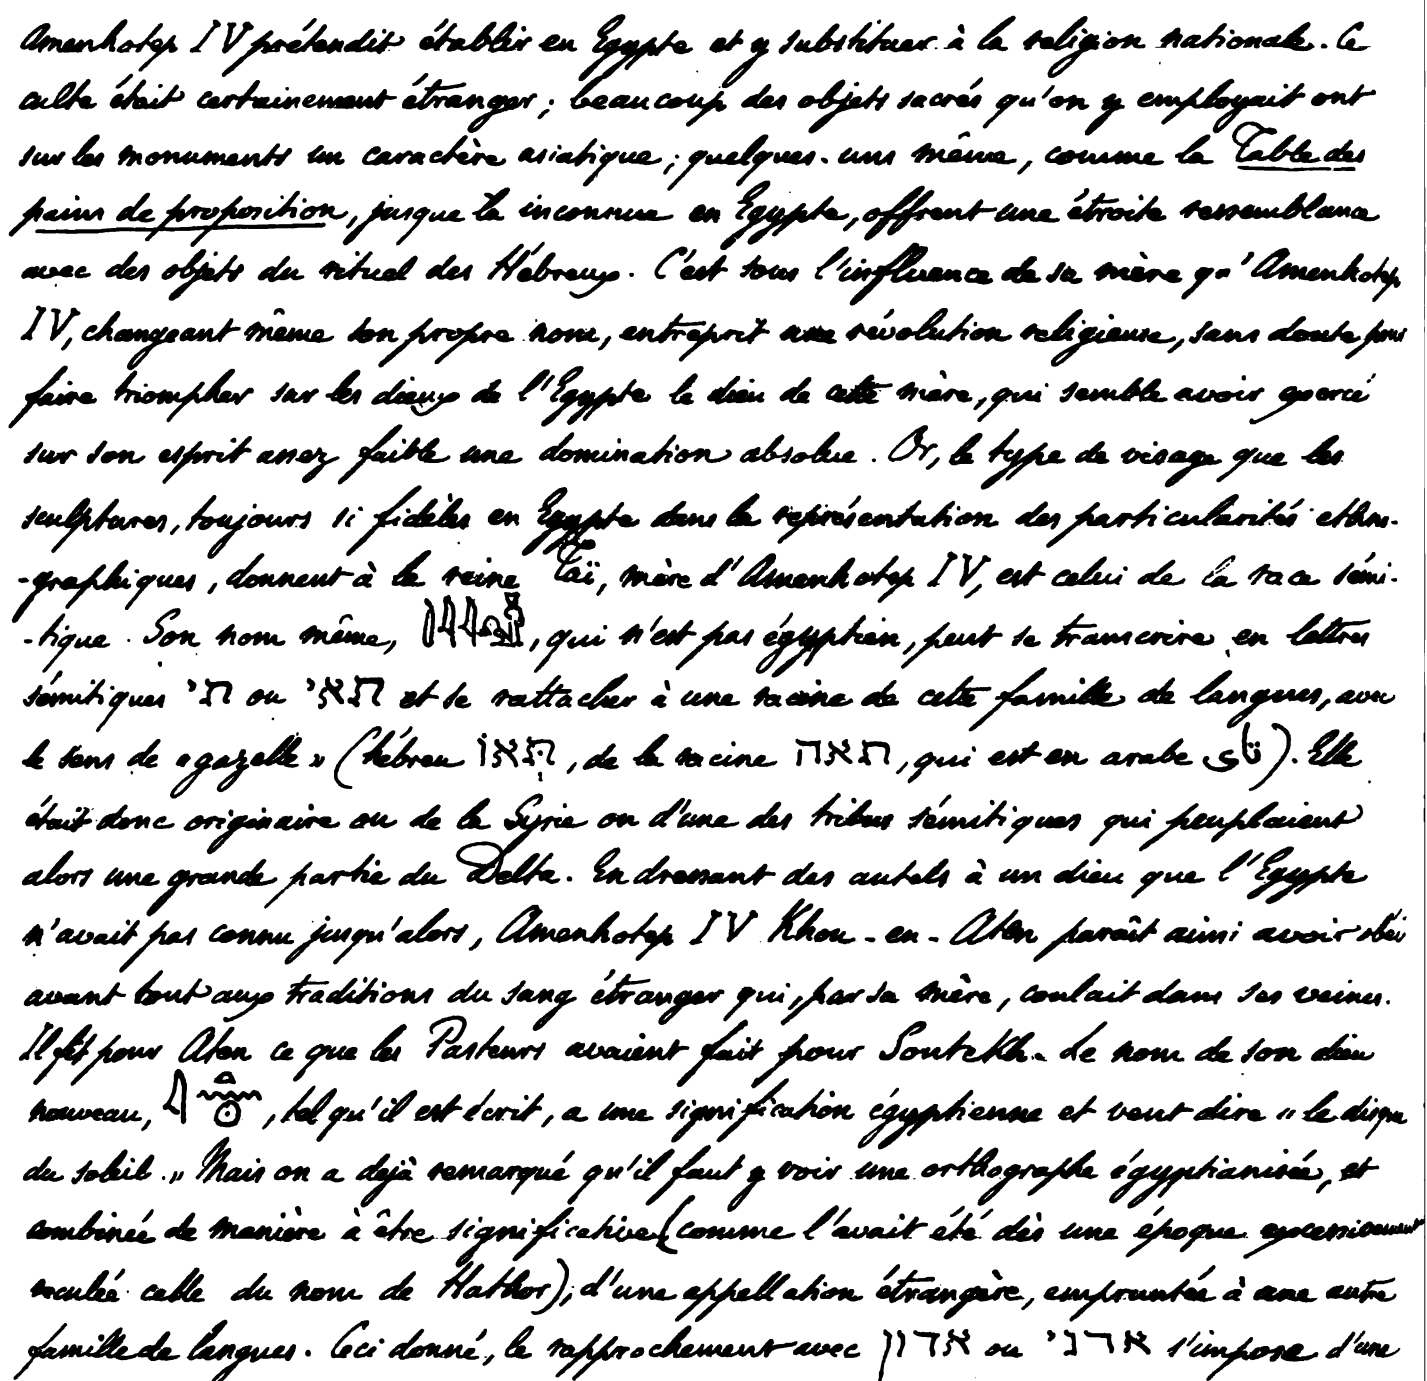 Amenhotep IV prétendit établir en Egypte et y substituer à la religion nationale. Ce
culte était certainement étranger ; beaucoup des objets sacrés qu'on y employait ont
sur les monuments un caractère asiatique ; quelques-uns même, comme la Table des
pains de proposition, jusque là inconnue en Egypte, offrent une étroite ressemblance
avec des objets du rituel des Hébreux. C'est sous l'influence de sa mère qu'Amenhotep
IV, changeant même son propre nom, entreprit une révolution religieuse, sans doute pour
faire triompher sur les dieux de l'Egypte le dieu de cette mère, qui semble avoir exercé
sur son esprit assez faible une domination absolue. Or, le type de visage que les
sculptures, toujours si fidèles en Egypte dans la représentation des particularités ethno-
-graphiques, donnent à la reine Taï, mère d'Amenhotep IV, est celui de la race sémi-
-tique. Son nom même, , qui n'est pas égyptien, peut se transcrire en lettres
sémitiques תי ou תאי et se rattacher à une racine de cette famille de langues, avec
le sens de « gazelle » (hébreu תאו, de la racine תאה, qui est en arabe ). Elle
était donc originaire ou de la Syrie ou d'une des tribus sémitiques qui peuplaient
alors une grande partie du Delta. En dressant des autels à un dieu que l'Egypte
n'avait pas connu jusqu'alors, Amenhotep IV Khou-en-Aten paraît ainsi avoir obéi
avant tout aux traditions du sang étranger qui, par sa mère, coulait dans ses veines.
Il fit pour Aten ce que les Pasteurs avaient fait pour Soutekh. Le nom de son dieu
nouveau, , tel qu'il est écrit, a une signification égyptienne et veut dire « le disque
du soleil. » Mais on a déjà remarqué qu'il faut y voir une orthographe égyptianisée, et
combinée de manière à être significative (comme l'avait été dès une époque excessivement
reculée celle du nom de Hathor), d'une appellation étrangère, empruntée à une autre
famille de langues. Ceci donné, le rapprochement avec אדון ou אדני s'impose d'une